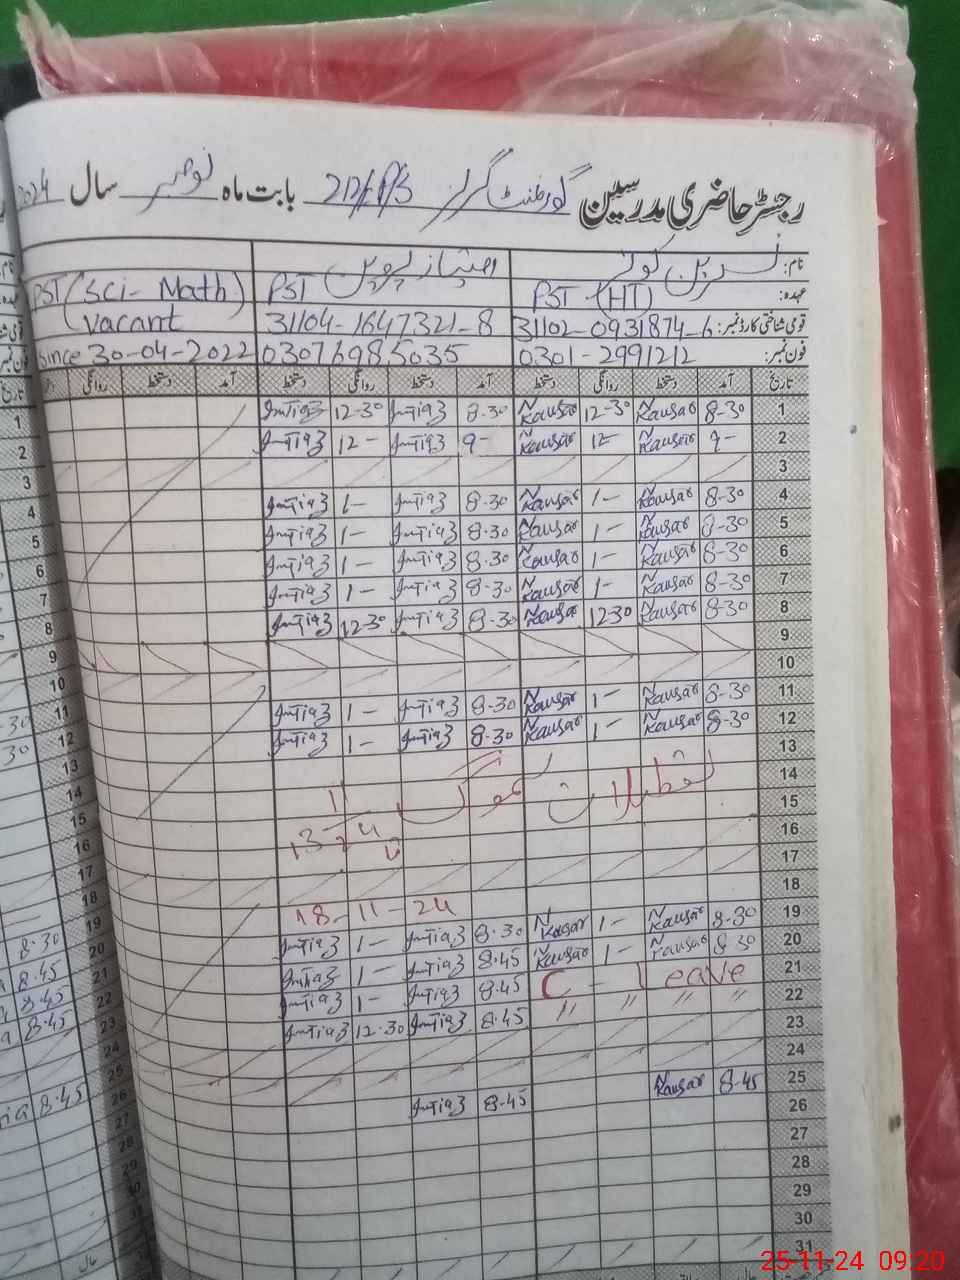 رجسٹر حاضری مدرسین گورنمنٹ گرلز 212/EP/S بابت ماہ نومبر سال 2024
نام: نسرین کوثر امتیاز پروین
عہدہ: PST (HT) PST PST (Sci- Math)
قومی شناختی کارڈ نمبر: 31102-0931874-6 31104-1647321-8 (Vacant
فون نمبر: 0301-2991212 03076985035 Since 30-04-2022
تاریخ آمد دستخط روانگی دستخط آمد دستخط روانگی دستخط آمد دستخط روانگی
1 8-30 Nkausar 12-30 Nkausar 8-30 Imtiaz 12-30 Imtiaz
2 9- Nkausar 12- Nkausar 9- Imtiaz 12- Imtiaz
3
4 8-30 Nkausar 1- Nkausar 8-30 Imtiaz 1- Imtiaz
5 8-30 Nkausar 1- Nkausar 8-30 Imtiaz 1- Imtiaz
6 8-30 Nkausar 1- Nkausar 8-30 Imtiaz 1- Imtiaz
7 8-30 Nkausar 1- Nkausar 8-30 Imtiaz 1- Imtiaz
8 8-30 Nkausar 12-30 Nkausar 8-30 Imtiaz 12-30 Imtiaz
9
10
11 8-30 Nkausar 1- Nkausar 8-30 Imtiaz 1- Imtiaz
12 8-30 Nkausar 1- Nkausar 8-30 Imtiaz 1- Imtiaz
13
14 تعطیلات سموگ
15
16
17
18 18-11-24
19 8-30 Nkausar 1- Nkausar 8-30 Imtiaz 1- Imtiaz
20 8-30 Nkausar 1- Nkausar 8-45 Imtiaz 1- Imtiaz
21 C - Leave 8-45 Imtiaz 1- Imtiaz
22 " " " " 8-45 Imtiaz 12-30 Imtiaz
23
24
25 8-45 Nkausar 8-45 Imtiaz
26
27
28
29
30
31
25-11-24 09:20